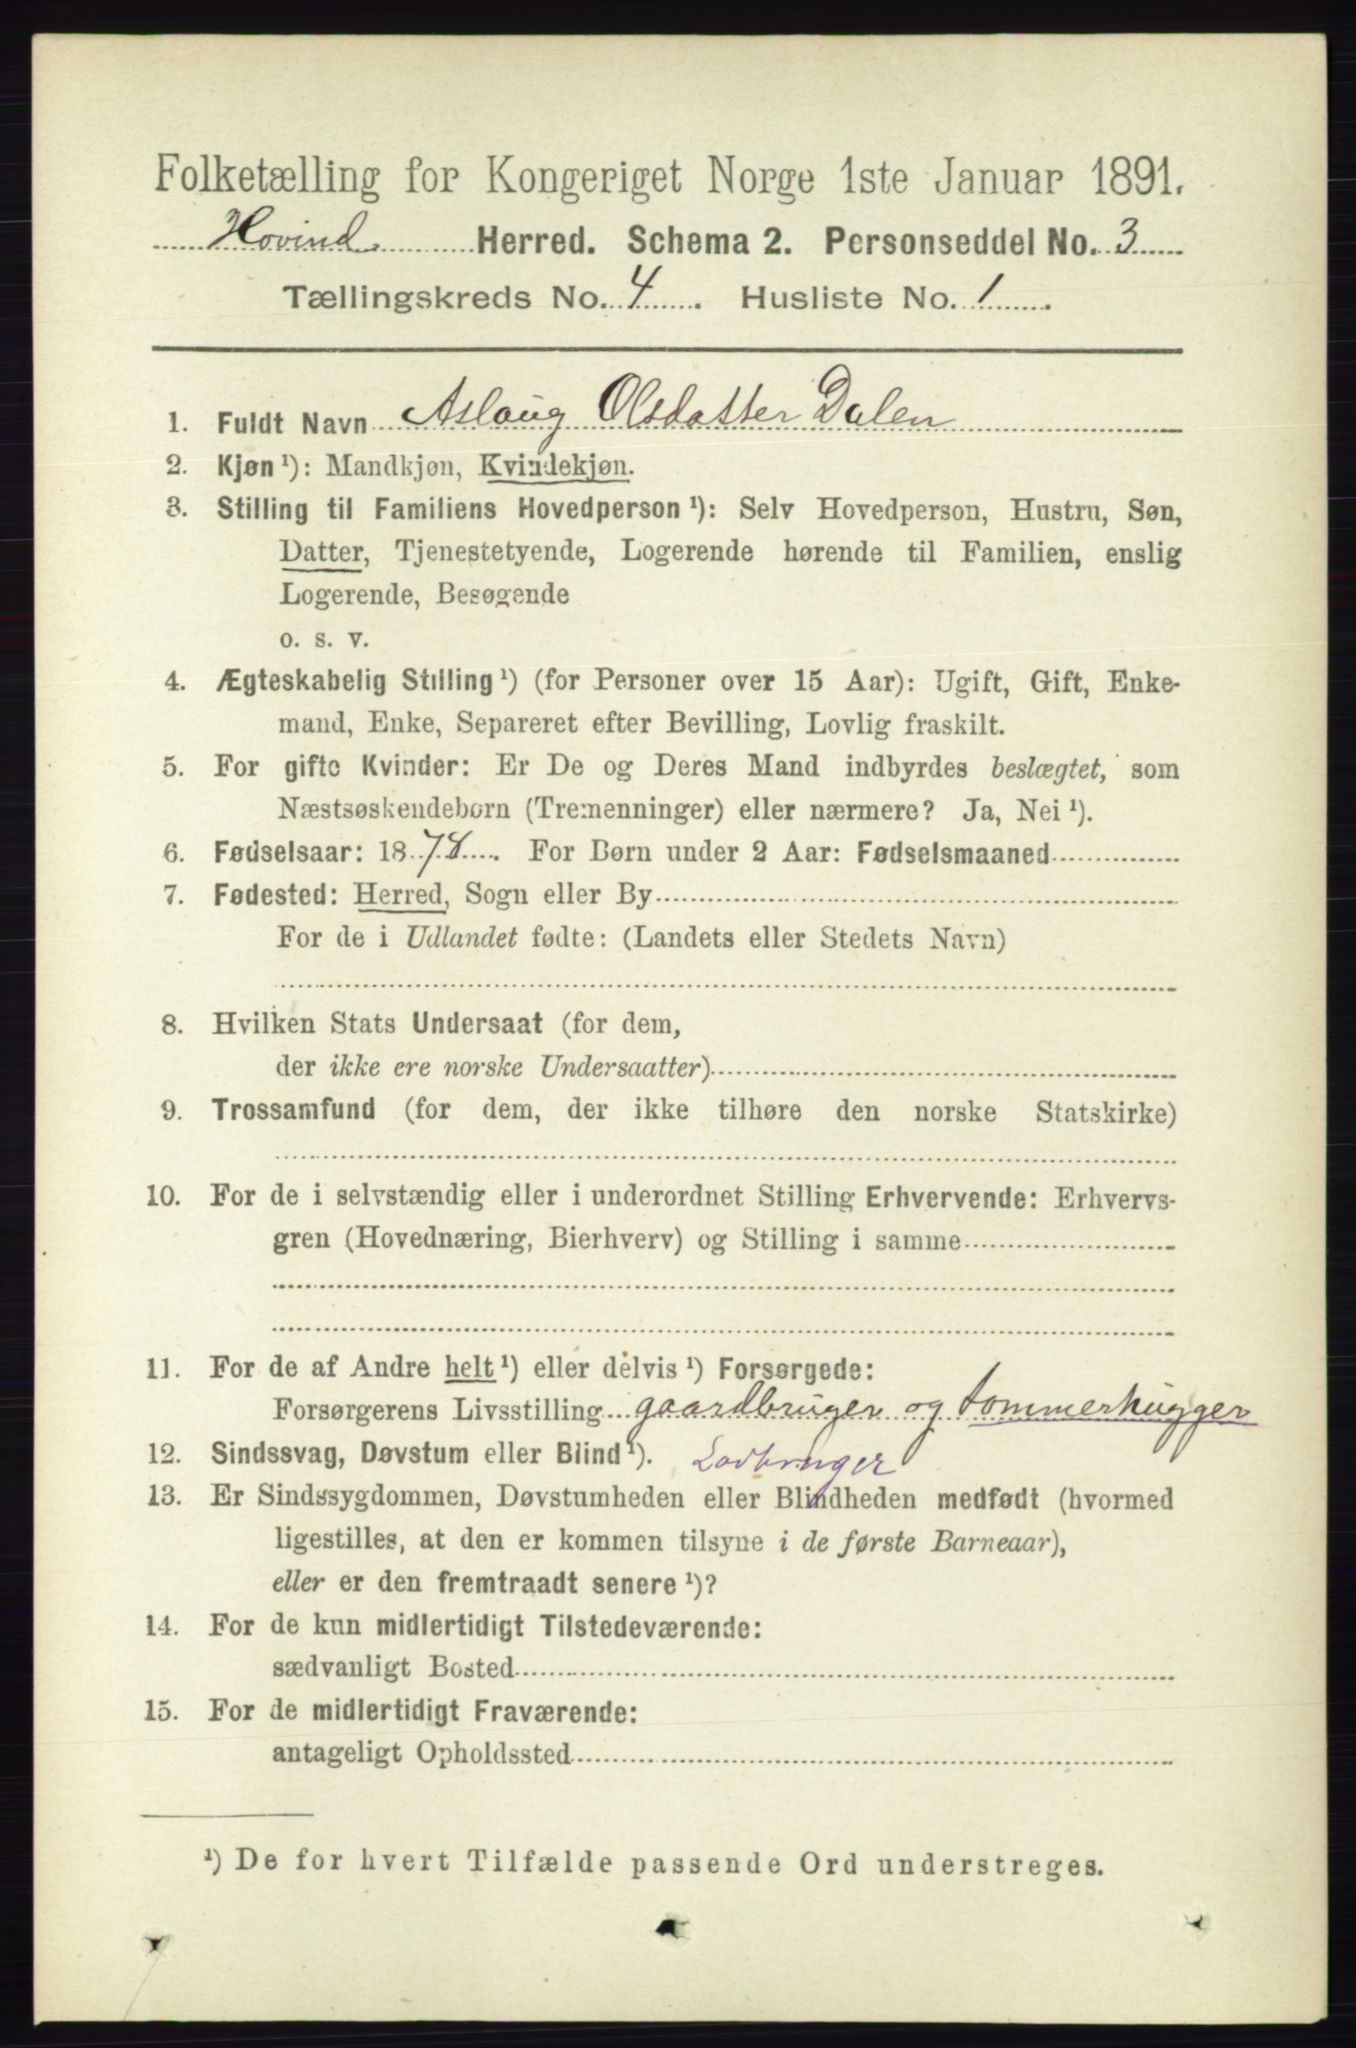 Folketælling for Kongeriget Norge 1ste Januar 1891.
Hovind Herred. Schema 2. Personseddel No. 3
Tællingskreds No. 4. Husliste No. 1.
1. Fuldt Navn Aslaug Olsdatter Dalen
2. Kjøn ¹): Mandkjøn, Kvindekjøn.
3. Stilling til Familiens Hovedperson ¹): Selv Hovedperson, Hustru, Søn,
Datter, Tjenestetyende, Logerende hørende til Familien, enslig
Logerende, Besøgende
o. s. v.
4. Ægteskabelig Stilling ¹) (for Personer over 15 Aar): Ugift, Gift, Enke-
mand, Enke, Separeret efter Bevilling, Lovlig fraskilt.
5. For gifte Kvinder: Er De og Deres Mand indbyrdes beslægtet, som
Næstsøskendebørn (Tremenninger) eller nærmere? Ja, Nei ¹).
6. Fødselsaar: 1878. For Børn under 2 Aar: Fødselsmaaned
7. Fødested: Herred, Sogn eller By
For de i Udlandet fødte: (Landets eller Stedets Navn)
8. Hvilken Stats Undersaat (for dem,
der ikke ere norske Undersaatter)
9. Trossamfund (for dem, der ikke tilhøre den norske Statskirke)
10. For de i selvstændig eller i underordnet Stilling Erhvervende: Erhvervs-
gren (Hovednæring, Bierhverv) og Stilling i samme
11. For de af Andre helt ¹) eller delvis ¹) Forsørgede:
Forsørgerens Livsstilling gaardbruger og tommerhugger
12. Sindssvag, Døvstum eller Blind ¹).
13. Er Sindssygdommen, Døvstumheden eller Blindheden medfødt (hvormed
ligestilles, at den er kommen tilsyne i de første Barneaar),
eller er den fremtraadt senere ¹)?
14. For de kun midlertidigt Tilstedeværende:
sædvanligt Bosted
15. For de midlertidigt Fraværende:
antageligt Opholdssted
¹) De for hvert Tilfælde passende Ord understreges.